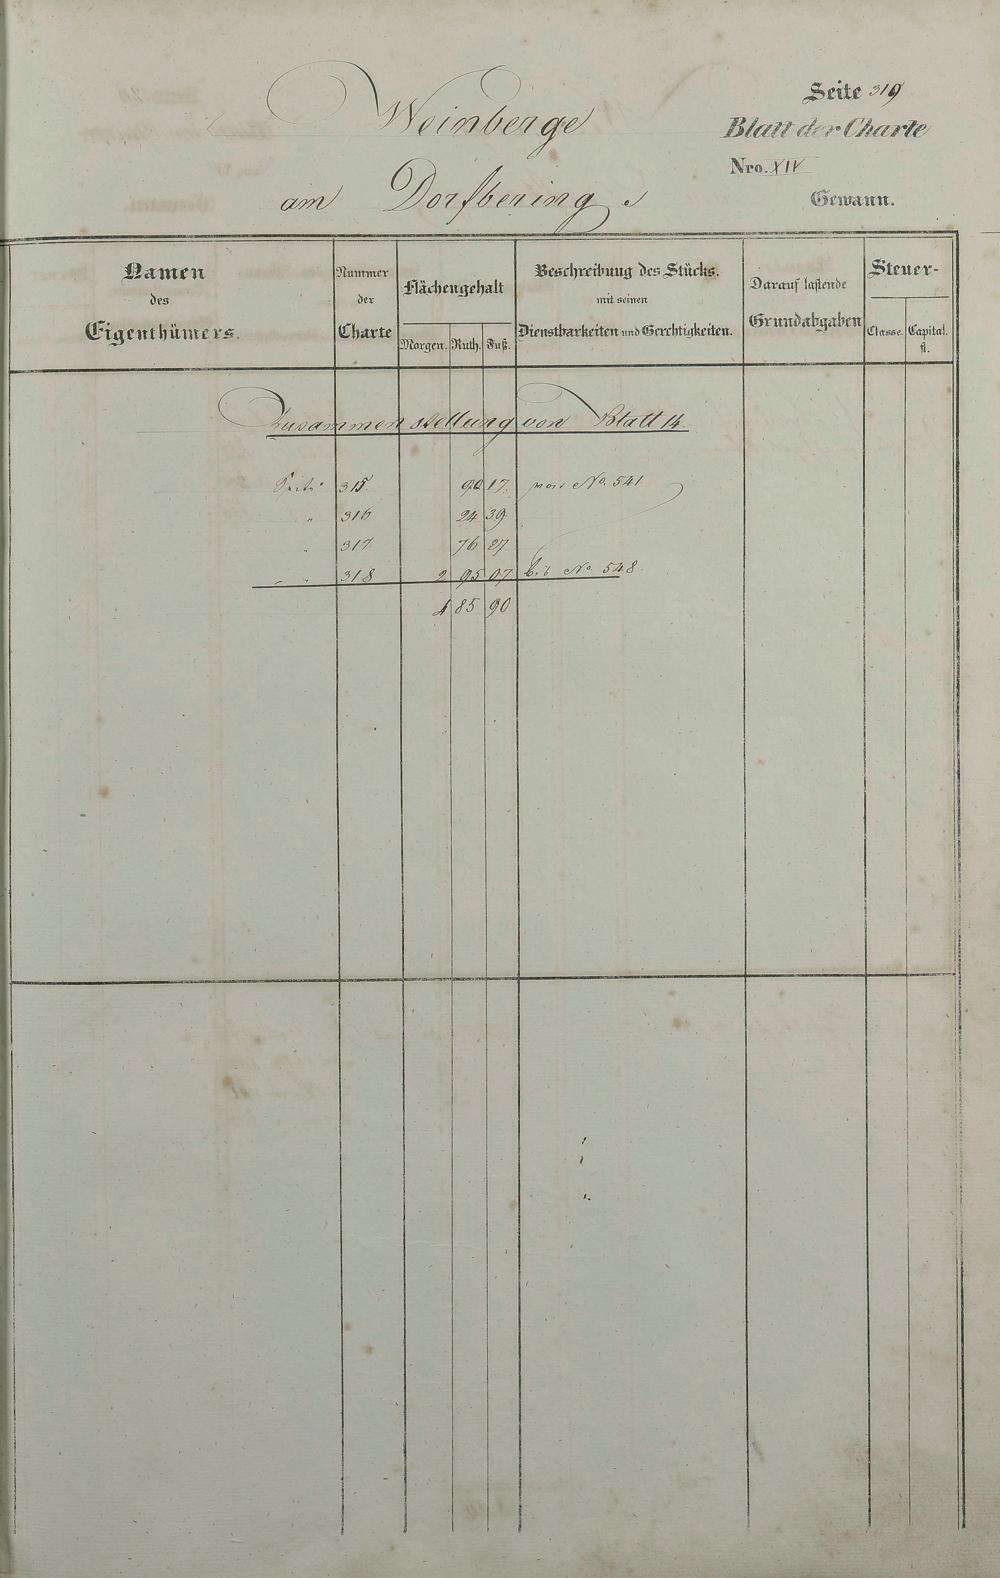 Weinberge
am Dorfbering.
Seite 319
Blatt der Charte
Nro. XIV
Gewann.
Namen
des
Eigenthümers.
Nummer
der
Charte
Flächengehalt
Morgen. Ruth. Fuß.
Beschreibung des Stücks.
mit seinen
Dienstbarkeiten und Gerchtigkeiten.
Darauf lastende
Grundabgaben
Steuer-
Classe. Capital.
fl.
Zusammenstellung von Blatt 14.
Seite 315 90 17. von No. 541
" 316 24 39
" 317 76 27
" " 318 2 95 07 bis No. 548
4 85 90